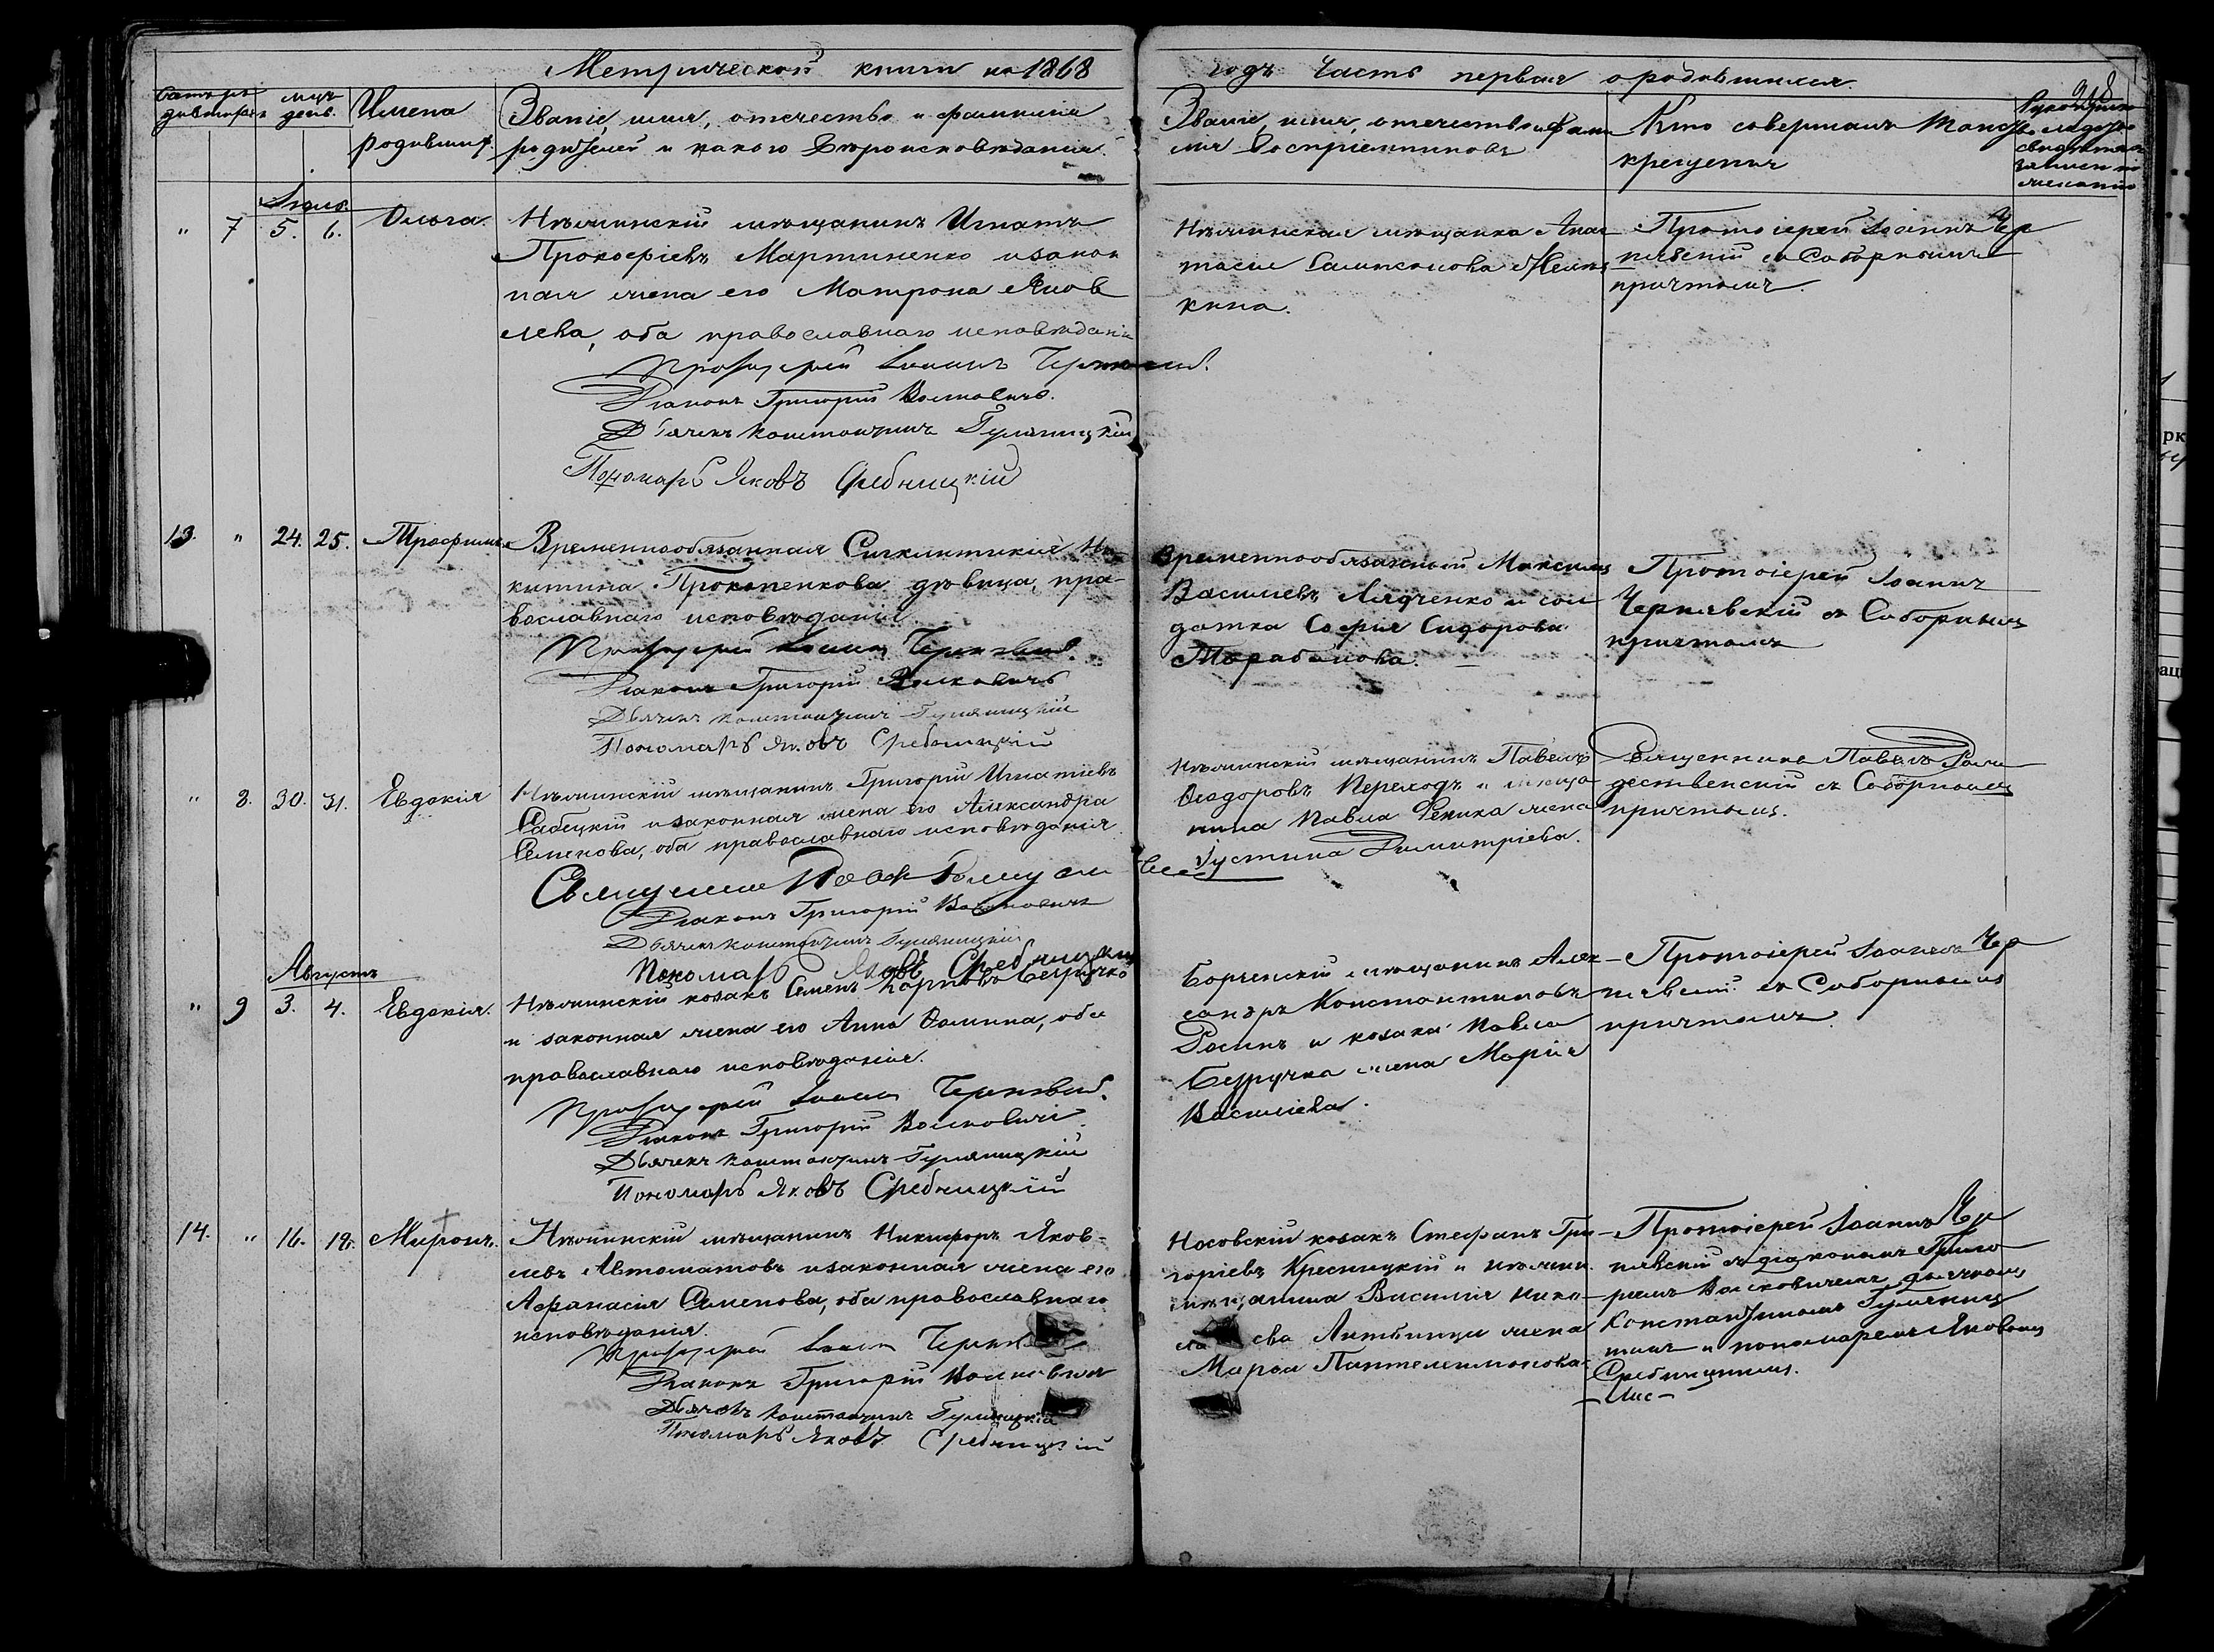 Метрической книги на 1868
годъ часть первая о родившихся.
318
мцъ
день.
Имена
родившихъ.
Званіе, имя, отчество и фамилія
родителей и какого вѣроисповѣданія.
Званіе, имя, отчество и фами
лія воспріемниковъ
Кто совершалъ таинство
крещенія
Іюль.
" 7 5. 6. Ольга.
Нѣжинскій мѣщанинъ Игнатъ
Прокофіевъ Мартиненко и закон
ная жена его Матрона Яков
лева, оба православнаго исповѣданія
Протоіерей Іоаннъ Чернявскій.
Діаконъ Григорій Волковичъ.
Дьячекъ Константинъ Гуляницкій
Пономарь Яковъ Сребницкій
Нѣжинская мѣщанка Анас
тасія
кина.
Протоіерей Іоаннъ Чер
нявскій съ Соборнымъ
причтомъ.
13. " 24. 25. Трофимъ.
Временнообязанная Сигклитикія Ни-
китина Прокопенкова дѣвица, пра-
вославнаго исповѣданія.
Протоіерей Іоаннъ Чернявскій.
Діаконъ Григорій Волковичъ
Дьячекъ Константинъ Гуляницкій
Пономарь Яковъ Сребницкій
Временнообязанный Максимъ
Васильевъ Лядченко и сол
датка Софія Сидорова
Тарабанова.
Протоіерей Іоаннъ
Чернявскій съ Соборнымъ
причтомъ
" 8. 30. 31. Евдокія
Нѣжинскій мѣщанинъ Григорій Игнатіевъ
и законная жена его Александра
Семенова, оба православнаго исповѣданія.
Священникъ
Діаконъ Григорій Волковичъ
Дьячекъ Константинъ Гуляницкій
Пономарь Яковъ Сребницкій
Нѣжинскій мѣщанинъ Павелъ
Ѳеодоровъ Переходъ и мѣща-
нина Павла жена
Іустина Димитріева.
Священникъ Павелъ Рож
дественскій съ Соборнымъ
причтомъ.
Августъ
" 9 3. 4. Евдокія.
Нѣжинскій козакъ Семенъ Карповъ Безручко
и законная жена его Анна Ѳомина, оба
православнаго исповѣданія.
Протоіерей Іоаннъ Чернявскій.
Діаконъ Григорій Волковичъ
Дьячекъ Константинъ Гуляницкій
Пономарь Яковъ Сребницкій
Борзенскій мѣщанинъ Алек-
сандръ Константиновъ
и козака Павла
Безручка жена Марія
Васильева.
Протоіерей Іоаннъ Чер
нявскій съ Соборнымъ
причтомъ.
14. " 16. 18. Миронъ.
Нѣжинскій мѣщанинъ Никифоръ Яков-
левъ Автоматовъ и законная жена его
Аѳанасія Семенова, оба православнаго
исповѣданія.
Протоіерей Іоаннъ
Діаконъ Григорій Волковичъ
Дьячекъ Константинъ Гуляницкій
Пономарь Яковъ Сребницкій
Носовскій козакъ Стефанъ Гри-
горіевъ Кресницкій и нѣжин.
мѣщанина Василія Нико-
жена
Марѳа Пантелеимонова.
Протоіерей Іоаннъ Чер
нявскій съ діакономъ Григо
ріемъ Волковичемъ, дьячкомъ
Константиномъ Гуляниц
кимъ и пономаремъ Яковомъ
Сребницкимъ.